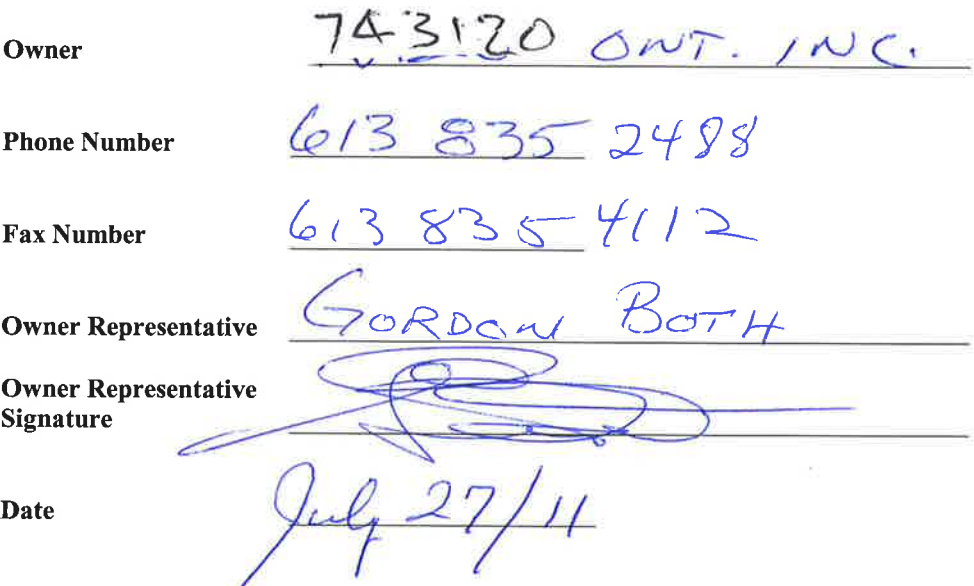 Owner 743120 ONT. INC.
Phone Number 613 835 2488
Fax Number 613 835 4112
Owner Representative GORDON BOTH
Owner Representative
Signature
Date July 27/11